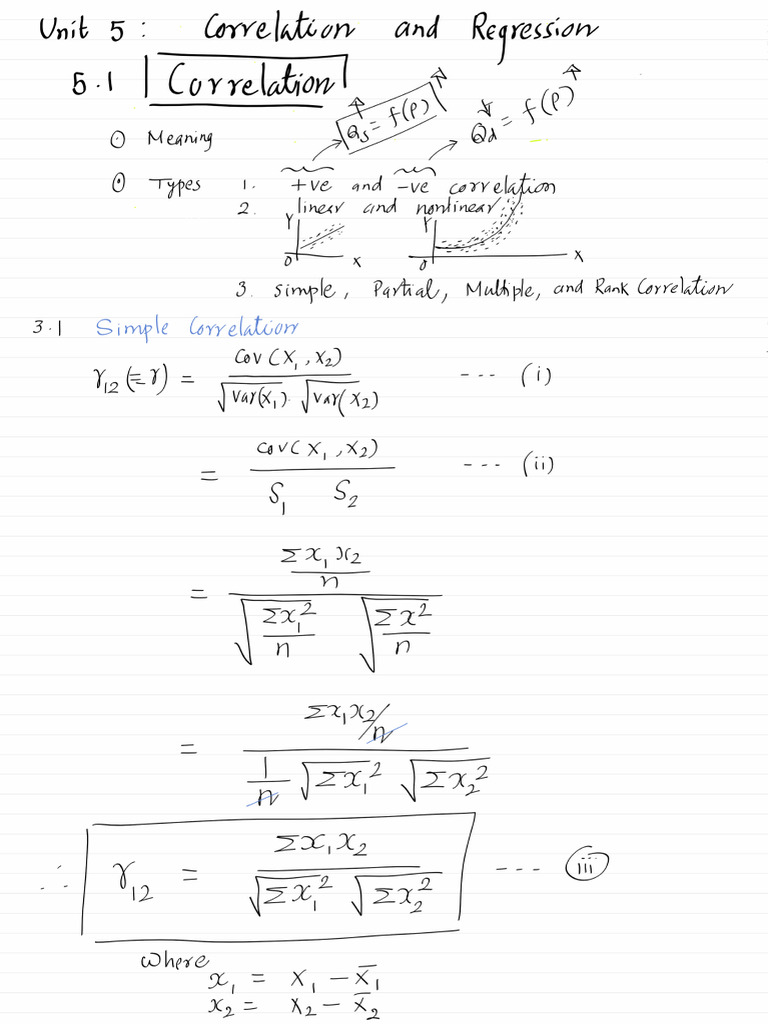 Unit 5 : Correlation and Regression
5.1 Correlation
Qs = f(P) Qd = f(P)
⊙ Meaning
⊙ Types 1. +ve and -ve correlation
2. linear and nonlinear
Y Y
0 x 0 x
3. simple, Partial, Multiple, and Rank Correlation
3.1 Simple Correlation
r₁₂ (≡ r) = Cov (X₁, X₂) / √Var(X₁) · √Var(X₂) --- (i)
= Cov(X₁, X₂) / S₁ S₂ --- (ii)
= (Σx₁x₂ / n) / (√(Σx₁² / n) √(Σx² / n))
= (Σx₁x₂ / n) / ((1/n) √Σx₁² √Σx₂²)
∴ r₁₂ = Σx₁x₂ / (√Σx₁² √Σx₂²) --- (iii)
where
x₁ = X₁ - X̄₁
x₂ = X₂ - X̄₂